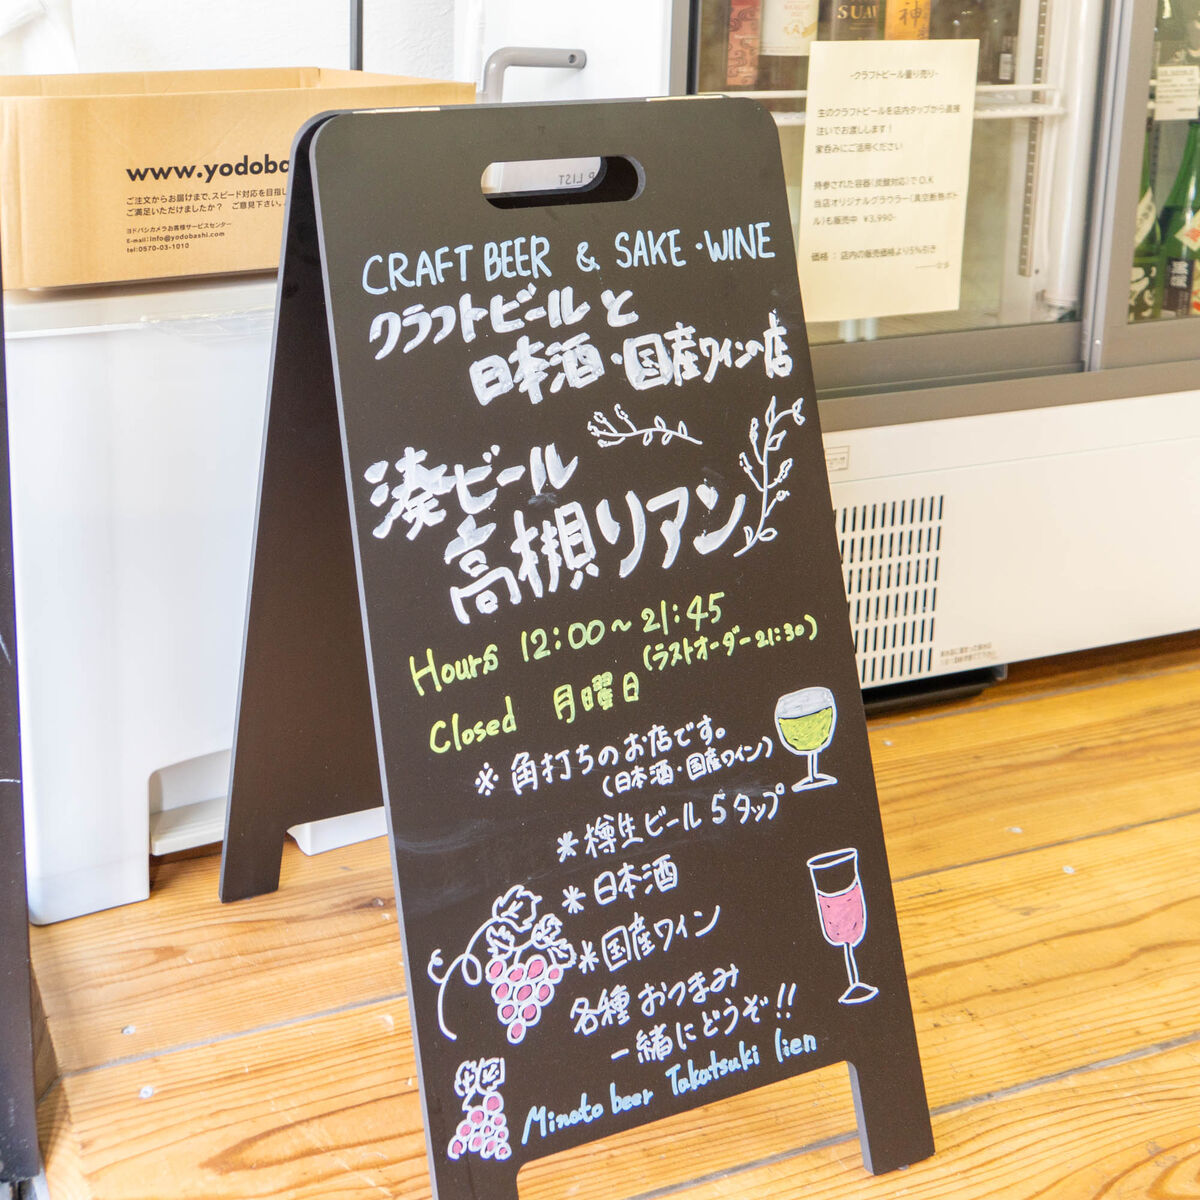 CRAFT BEER & SAKE・WINE
クラフトビールと
日本酒・国産ワインの店
湊ビール
高槻リアン
Hours 12:00～21:45
(ラストオーダー21:30)
Closed 月曜日
※角打ちのお店です。
(日本酒・国産ワイン)
*樽生ビール5タップ
*日本酒
*国産ワイン
各種おつまみ
一緒にどうぞ!!
Minato beer Takatsuki lien
www.yodoba
ご注文からお届けまで、スピード対応を目指し
ご満足いただけましたか? ご意見下さい。
ヨドバシカメラお客様サービスセンター
E-mail:info@yodobashi.com
tel:0570-03-1010
-クラフトビール量り売り-
生のクラフトビールを店内タップから直接
注いでお渡しします!
家呑みにご活用ください
持参された容器(炭酸対応)でO.K
当店オリジナルグラウラー(真空断熱ボト
ル)も販売中 ¥3,990-
価格 : 店内の販売価格より5%引き
P LIST
SUA
神